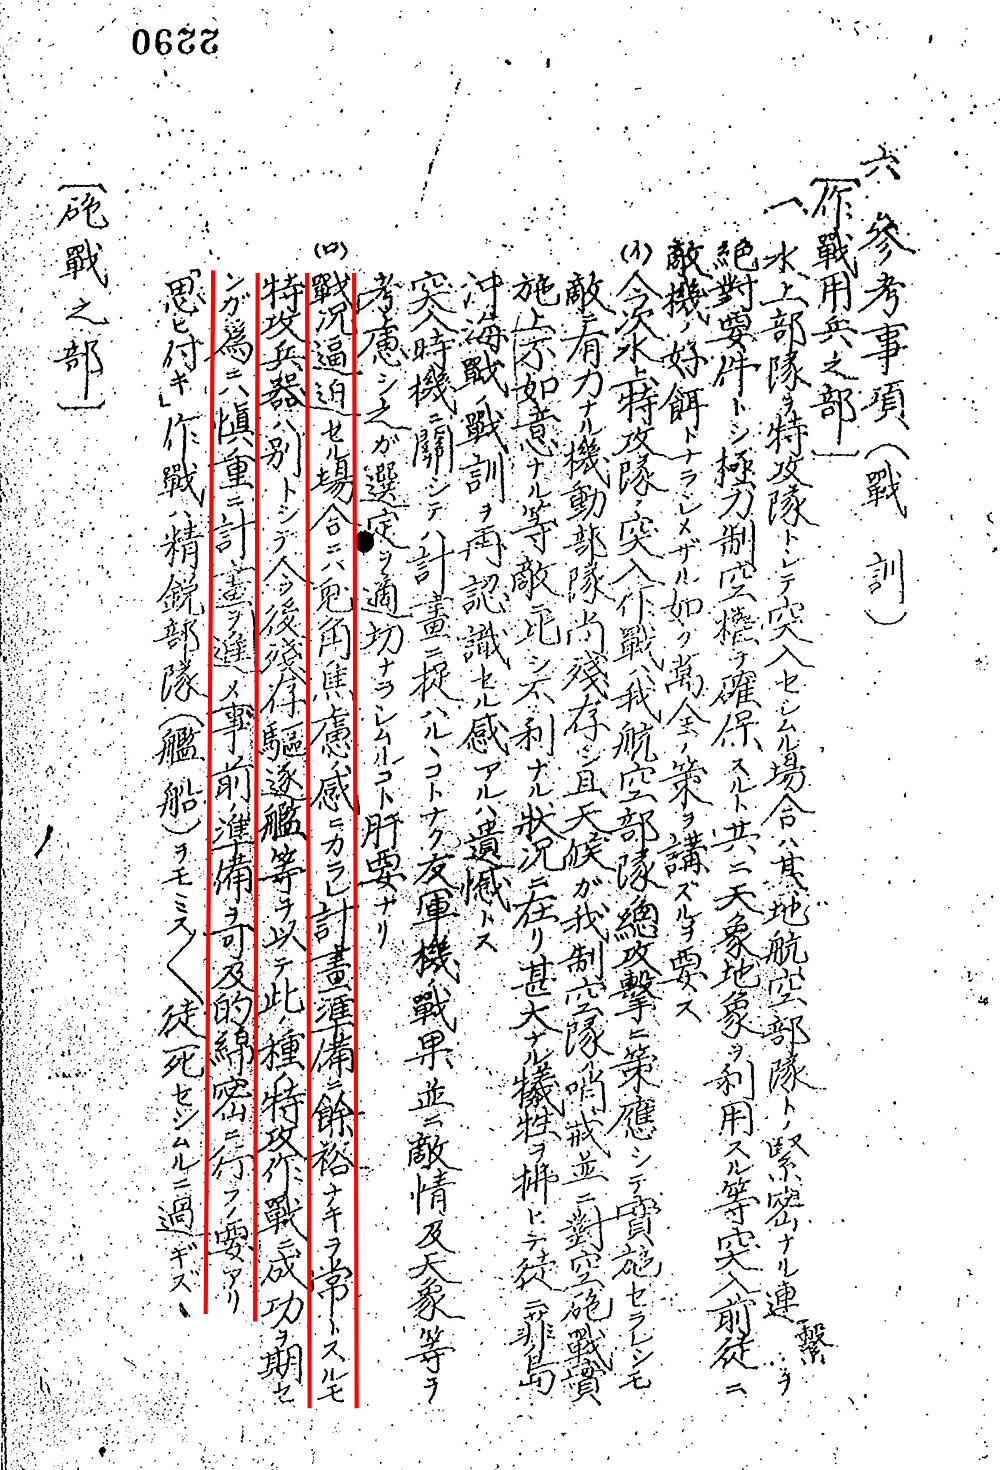 2290
六 參考事項(戰訓)
〔作戰用兵之部〕
一、水上部隊ヲ特攻隊トシテ突入セシムル場合ハ基地航空部隊トノ緊密ナル連繫ヲ
絶對要件トシ極力制空權ヲ確保スルト共ニ天象地象ヲ利用スル等突入前徒ニ
敵機ノ好餌トナラシメザル如ク萬全ノ策ヲ講ズルヲ要ス
(イ)今次水上特攻隊ノ突入作戰ハ我航空部隊總攻撃ニ策應シテ實施セラレシモ
敵ニ有力ナル機動部隊尚殘存シ且天候ガ我制空隊ノ哨戒並ニ對空砲戰實
施上不如意ナル等敵ニ比シ不利ナル狀況ニ在リ甚大ナル犠牲ヲ拂ヒテ徒ニ菲島
沖海戰ノ戰訓ヲ再認識セル感アルハ遺憾トス
突入時機ニ關シテハ計畫ニ捉ハルヽコトナク友軍機ノ戰果並ニ敵情及天象等ヲ
考慮シ之ガ選定ヲ適切ナラシムルコト肝要ナリ
(ロ)戰況逼迫セル場合ニハ兎角焦慮ノ感ニカラレ計畫準備ニ餘裕ナキヲ常トスルモ
特攻兵器ハ別トシテ今後殘存驅逐艦等ヲ以テ此ノ種ノ特攻作戰ニ成功ヲ期セ
ンガ爲ニハ愼重ニ計畫ヲ進メ事前ノ準備ヲ可及的綿密ニ行フノ要アリ
「思ヒ付キ」作戰ハ精鋭部隊(艦船)ヲモミスミス徒死セシムルニ過ギズ
〔砲戰之部〕